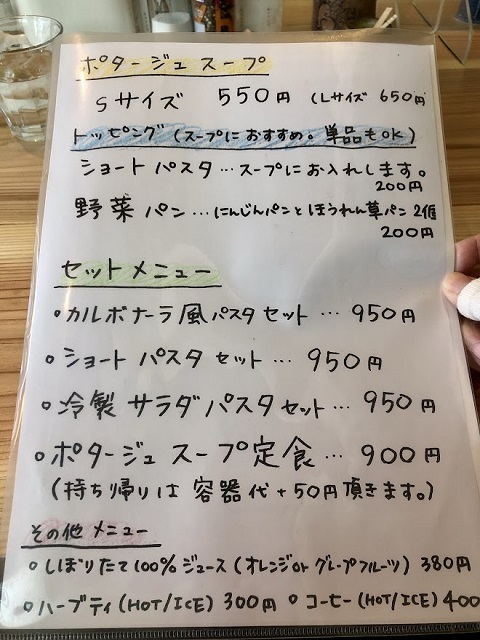 ポタージュスープ
Sサイズ 550円 (Lサイズ 650円
トッピング(スープにおすすめ。単品もOK)
ショートパスタ…スープにお入れします。
200円
野菜パン…にんじんパンとほうれん草パン2個
200円
セットメニュー
○カルボナーラ風パスタセット…950円
○ショートパスタセット…950円
○冷製サラダパスタセット…950円
○ポタージュスープ定食…900円
(持ち帰りは容器代+50円頂きます。)
その他メニュー
○しぼりたて100%ジュース(オレンジorグレープフルーツ)380円
○ハーブティ(HOT/ICE)300円 ○コーヒー(HOT/ICE)400